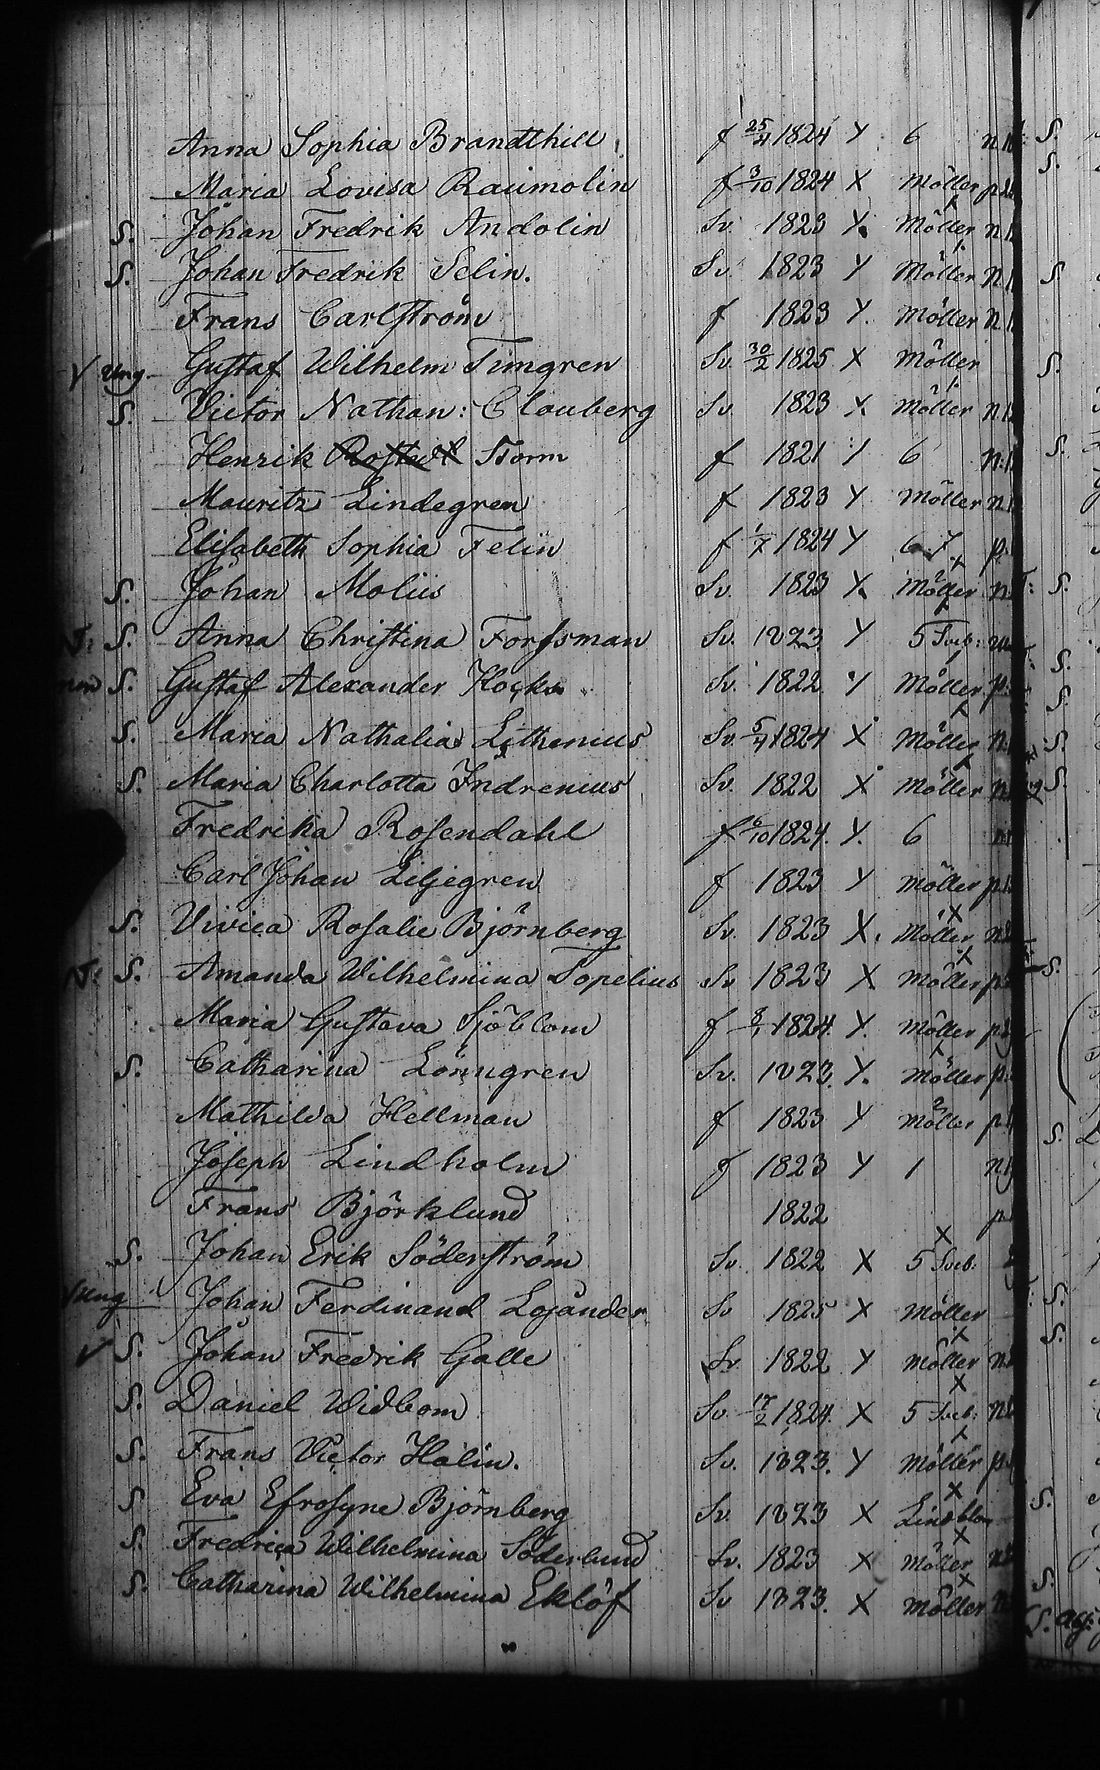 Anna Sophia Brandthill f 25/4 1824 Y 6
Maria Lovisa Raumolin f 3/10 1824 X Möller
S. Johan Fredrik Andolin Sv. 1823 Y. Möller
S. Johan Fredrik Selin. Sv. 1823 Y Möller
Frans Carlström f 1823 Y. Möller
V Ung. Gustaf Wilhelm Timgren Sv. 30/2 1825 X Möller
S. Victor Nathan: Clouberg Sv. 1823 Y. Möller
Henrik Storm f 1821 Y 6
Mauritz Lindegren f 1823 Y Möller
Elisabeth Sophia Felin f 1/7 1824 Y 6
S. Johan Molüs Sv. 1823 X. Möller
S. Anna Christina Forssman Sv. 1823 Y 5 Sveb:
S. Gustaf Alexander Sv. 1822 Y Möller
S. Maria Nathalia Lithenius Sv. 5/4 1824 X Möller
S. Maria Charlotta Indrenius Sv. 1822 X Möller
Fredrika Rosendahl f 6/10 1824. Y. 6
Carl Johan Liljegren f 1823 Y Möller
S. Vivica Rosalie Björnberg Sv. 1823 X. Möller
S. Amanda Wilhelmina Topelius Sv 1823 X Möller
Maria Gustava Sjöblom f 8/1 1824. Y. Möller
S. Catharina Lönngren Sv. 1823. Y. Möller
Mathilda Hellman f 1823 Y Möller
Joseph Lindholm f 1823 Y 1
Frans Björklund 1822
S. Johan Erik Söderström Sv. 1822 X 5 Sveb.
V Ung Johan Ferdinand Lojander Sv 1825 X Möller
V S. Johan Fredrik Galle Sv. 1822 Y Möller
S. Daniel Widbom Sv. 17/2 1824. X 5 Sveb:
S. Frans Victor Halin. Sv. 1823. Y Möller
S Eva Efrosyne Björnberg Sv. 1823 X
S. Fredrica Wilhelmina Söderlund Sv. 1823 X Möller
S. Catharina Wilhelmina Eklöf Sv 1823. X Möller